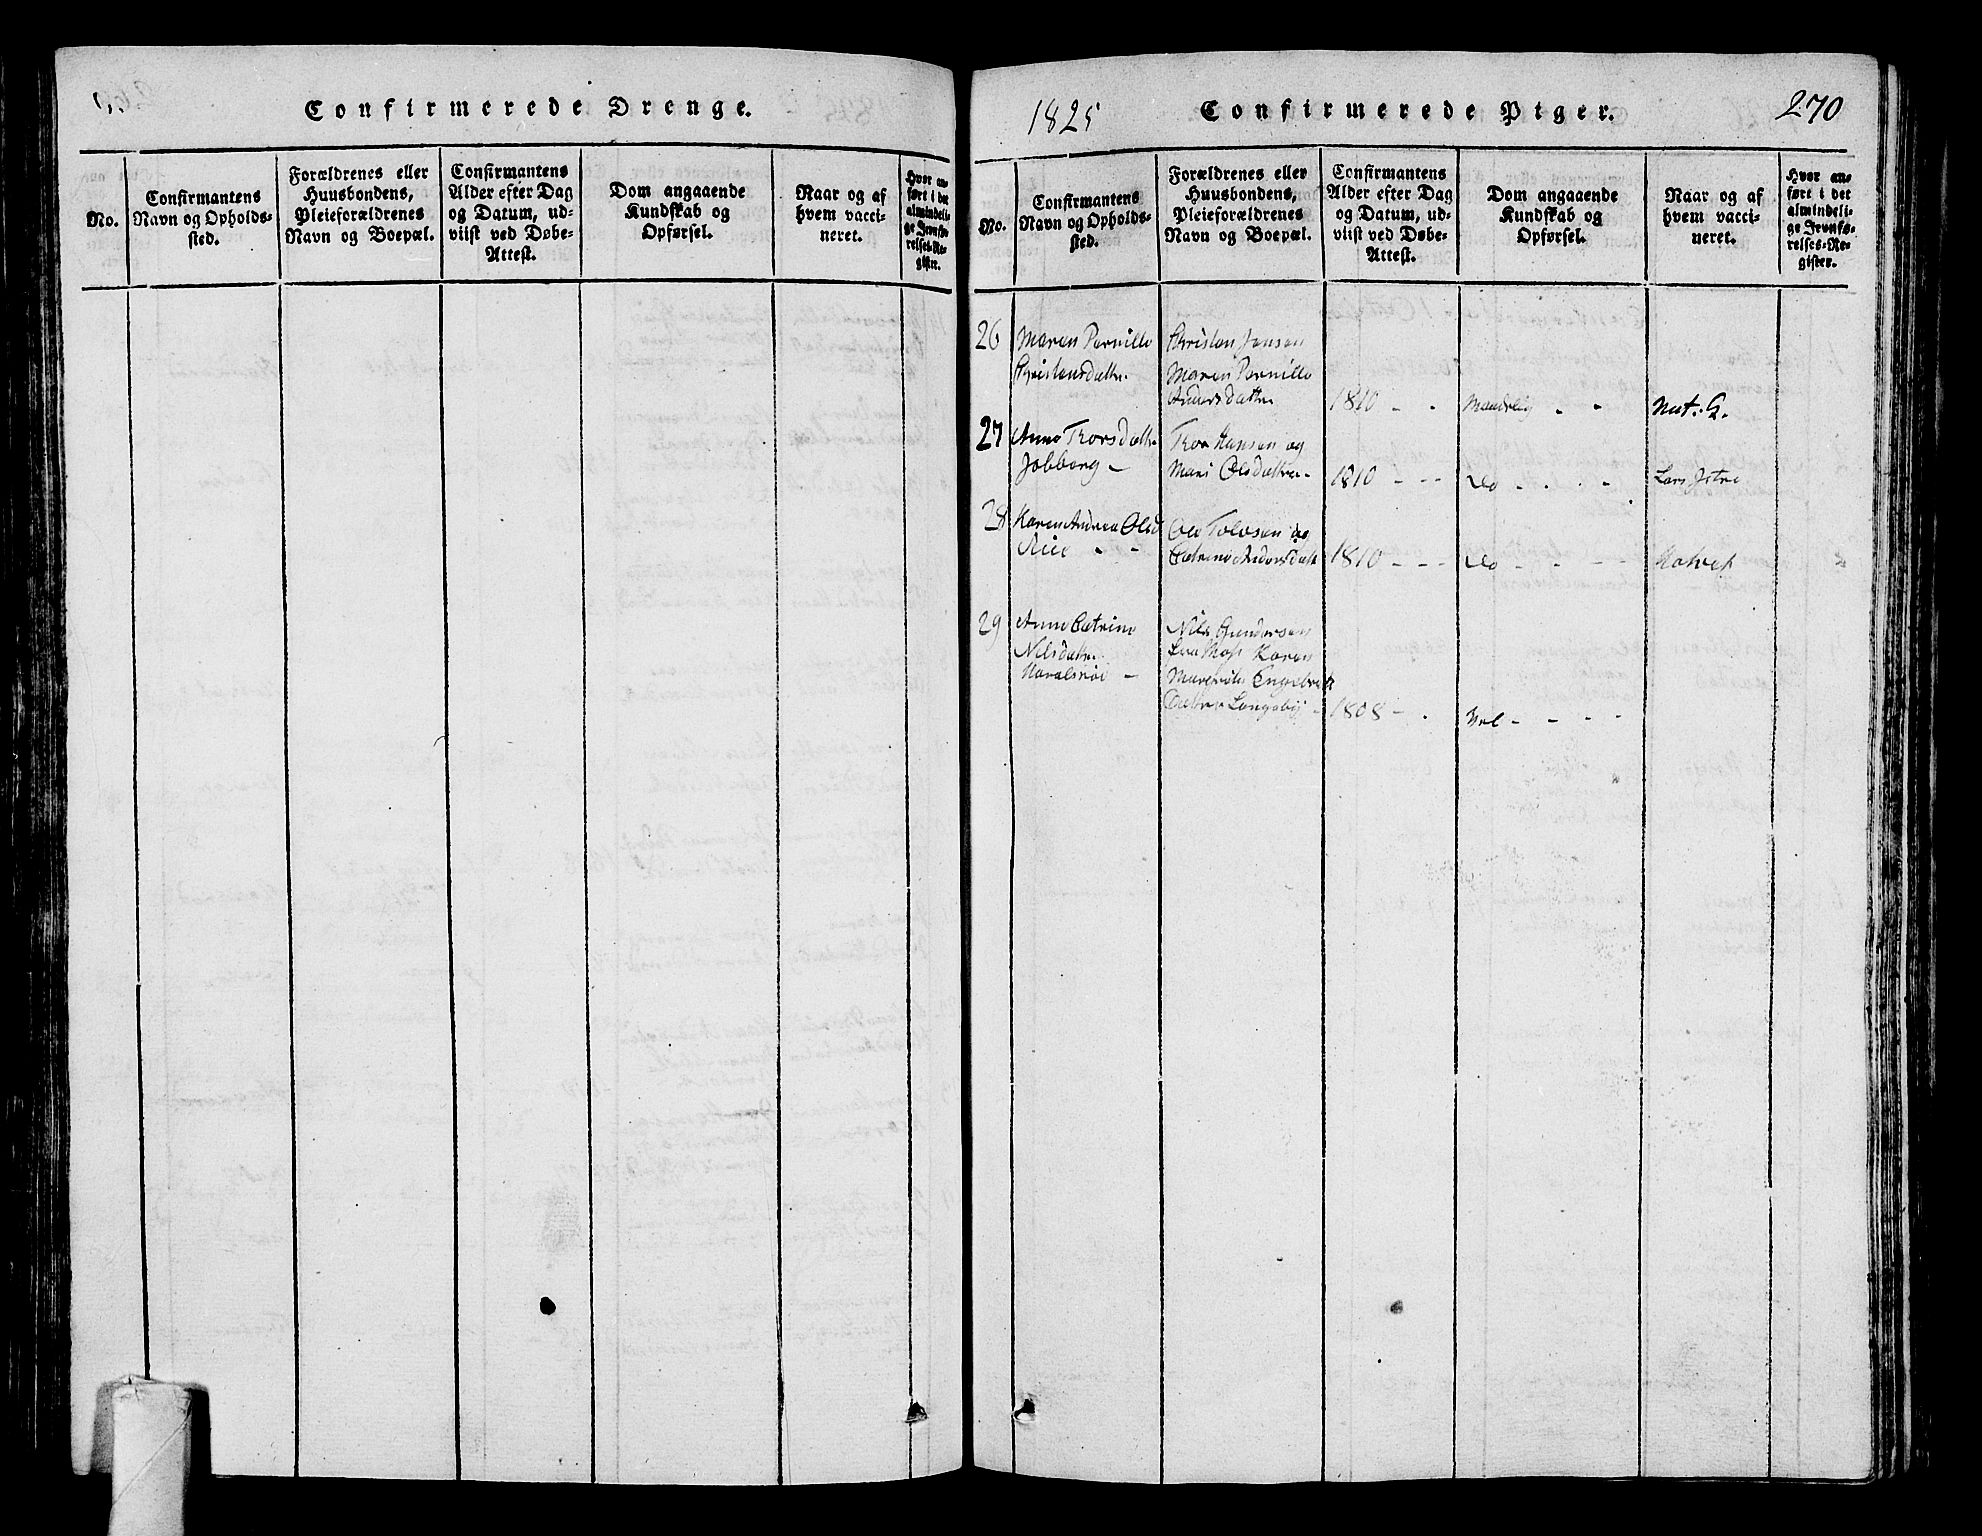 Confirmerede Drenge.
No.
Confirmantens
Navn og Opholds-
sted.
Forældrenes eller
Huusbondens,
Pleieforældrenes
Navn og Boepæl.
Confirmantens
Alder efter Dag
og Datum, ud-
viist ved Døbe-
Attest.
Dom angaaende
Kundskab og
Opførsel.
Naar og af
hvem vacci-
neret.
Hvor an-
ført i det
almindeli-
ge Jevnfø-
relses-Re-
gister.
1825
Confirmerede Piger.
270
No.
Confirmantens
Navn og Opholds-
sted.
Forældrenes eller
Huusbondens,
Pleieforældrenes
Navn og Boepæl.
Confirmantens
Alder efter Dag
og Datum, ud-
viist ved Døbe-
Attest.
Dom angaaende
Kundskab og
Opførsel.
Naar og af
hvem vacci-
neret.
Hvor an-
ført i det
almindeli-
ge Jevnfø-
relses-Re-
gister.
26
Maren Pernille
Christensdattr.
Christen Jensen
Maren Pernille
Andersdattr
1810 - -
Maadelig - -
27
Anne Thorsdattr.
Jobborg -
Thor Hansen og
Mari Olsdatter -
1810 - - -
do - - - -
Lars Istre
28
Karen Andrea Olsd
Ole Tolvsen og
Catrine Andersdattr
1810 - - -
do - - - -
29
Anne Catrine
Nilsdattr.
Nils Gundersen
Karen
Engelbrett
Langeby -
1808 - -
Vel - - - -